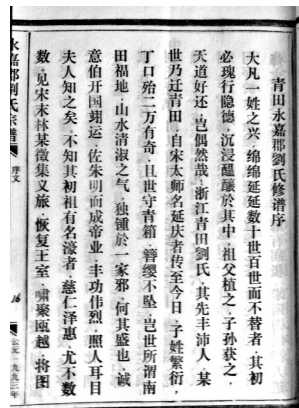 青田永嘉郡劉氏修谱序
大凡一姓之兴，绵绵延延数十世百世而不替者，其初
必瑰行隐德，沉浸醲釀於其中，祖父植之，子孙获之，
天道好还，岂偶然哉，浙江青田劉氏，其先丰沛人，某
世乃迁青田，自宋太师名延庆者传至今日，子姓繁衍，
丁口殆二万有奇，且世守青箱，簪缨不坠，岂世所谓南
田福地，山水清淑之气，独锺於一家邪，何其盛也，诚
意伯开国翊运，佐朱明而成帝业，丰功伟烈，照人耳目
夫人知之矣，不知其初祖有名濠者，慈仁泽惠，尤不数
数，见宋末林某徵集义旅，恢复王室，啸聚瓯越，将图
永嘉郡劉氏宗谱
序文
16
公元一九九二年